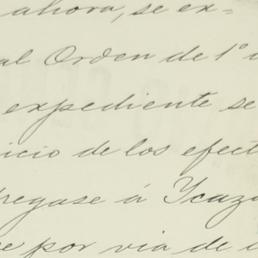 ahora, se ex=
al Orden de 1º
expediente se
icio de los efect
regase á Ycaza
por via de